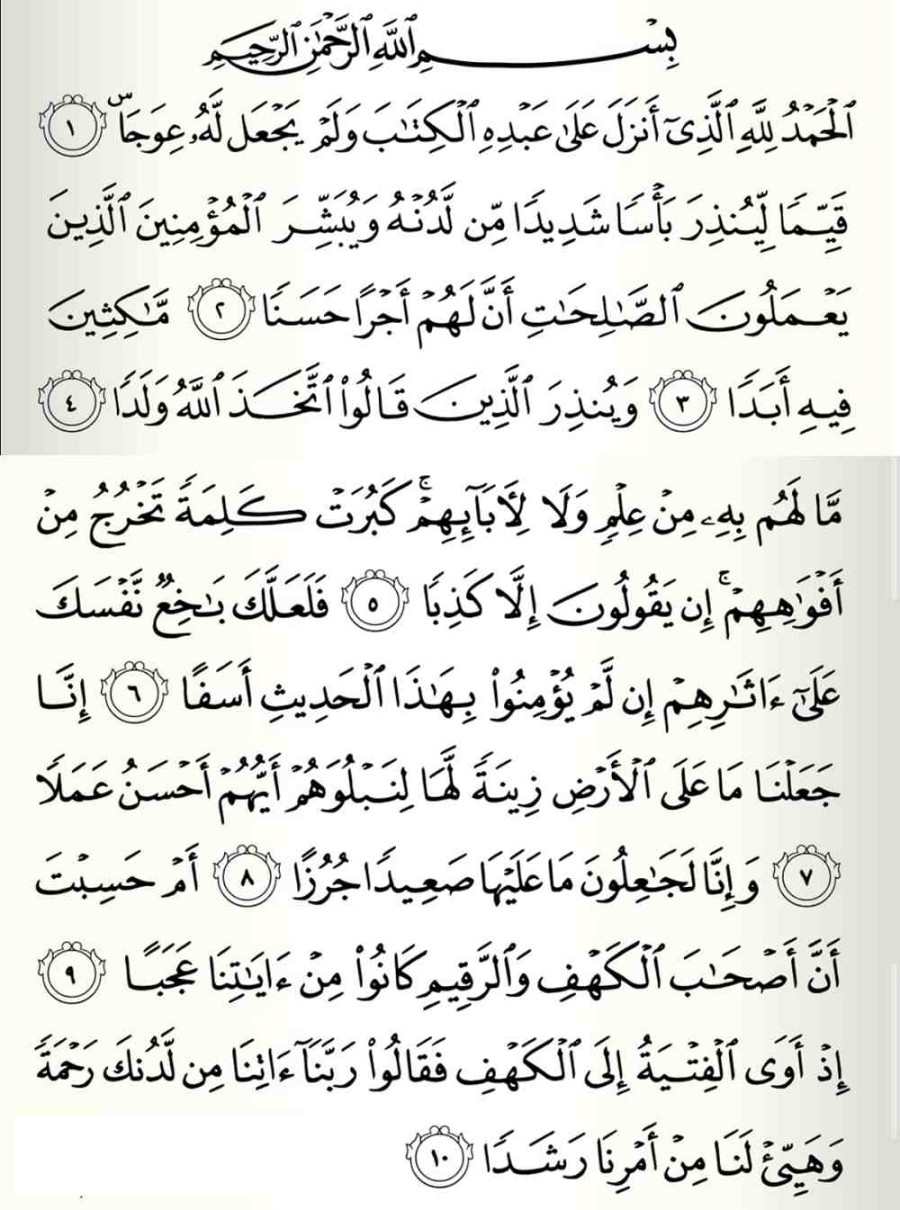 بِسْمِ ٱللَّهِ ٱلرَّحْمَٰنِ ٱلرَّحِيمِ
ٱلْحَمْدُ لِلَّهِ ٱلَّذِىٓ أَنزَلَ عَلَىٰ عَبْدِهِ ٱلْكِتَٰبَ وَلَمْ يَجْعَل لَّهُۥ عِوَجَاۜ ١
قَيِّمًا لِّيُنذِرَ بَأْسًا شَدِيدًا مِّن لَّدُنْهُ وَيُبَشِّرَ ٱلْمُؤْمِنِينَ ٱلَّذِينَ
يَعْمَلُونَ ٱلصَّٰلِحَٰتِ أَنَّ لَهُمْ أَجْرًا حَسَنًا ٢ مَّٰكِثِينَ
فِيهِ أَبَدًا ٣ وَيُنذِرَ ٱلَّذِينَ قَالُوا۟ ٱتَّخَذَ ٱللَّهُ وَلَدًا ٤
مَّا لَهُم بِهِۦ مِنْ عِلْمٍ وَلَا لِأَبَآئِهِمْۚ كَبُرَتْ كَلِمَةً تَخْرُجُ مِنْ
أَفْوَٰهِهِمْۚ إِن يَقُولُونَ إِلَّا كَذِبًا ٥ فَلَعَلَّكَ بَٰخِعٌ نَّفْسَكَ
عَلَىٰٓ ءَاثَٰرِهِمْ إِن لَّمْ يُؤْمِنُوا۟ بِهَٰذَا ٱلْحَدِيثِ أَسَفًا ٦ إِنَّا
جَعَلْنَا مَا عَلَى ٱلْأَرْضِ زِينَةً لَّهَا لِنَبْلُوَهُمْ أَيُّهُمْ أَحْسَنُ عَمَلًا
٧ وَإِنَّا لَجَٰعِلُونَ مَا عَلَيْهَا صَعِيدًا جُرُزًا ٨ أَمْ حَسِبْتَ
أَنَّ أَصْحَٰبَ ٱلْكَهْفِ وَٱلرَّقِيمِ كَانُوا۟ مِنْ ءَايَٰتِنَا عَجَبًا ٩
إِذْ أَوَى ٱلْفِتْيَةُ إِلَى ٱلْكَهْفِ فَقَالُوا۟ رَبَّنَآ ءَاتِنَا مِن لَّدُنكَ رَحْمَةً
وَهَيِّئْ لَنَا مِنْ أَمْرِنَا رَشَدًا ١٠